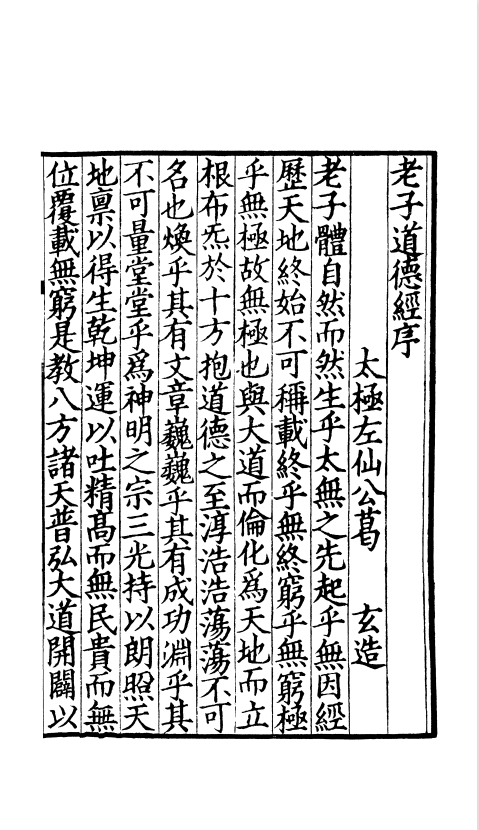 老子道德經序
太極左仙公葛　玄造
老子體自然而然生乎太無之先起乎無因經
歷天地終始不可稱載終乎無終窮乎無窮極
乎無極故無極也與大道而倫化爲天地而立
根布炁於十方抱道德之至淳浩浩蕩蕩不可
名也煥乎其有文章巍巍乎其有成功淵乎其
不可量堂堂乎爲神明之宗三光持以朗照天
地稟以得生乾坤運以吐精高而無民貴而無
位覆載無窮是教八方諸天普弘大道開闢以